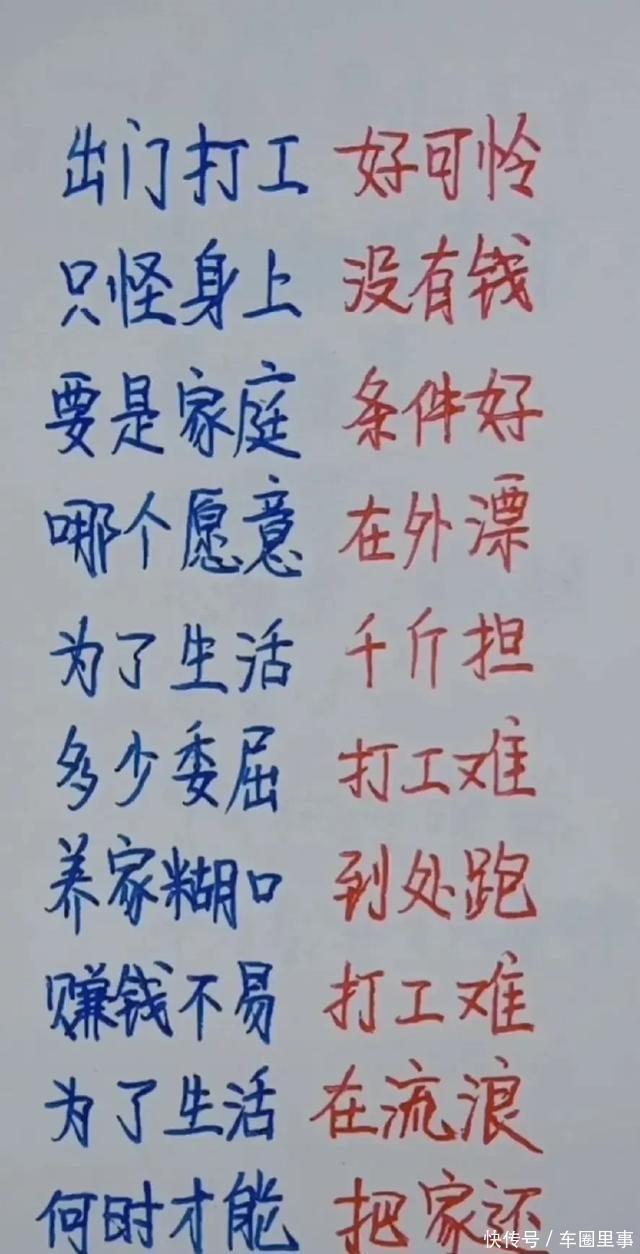 出门打工 好可怜
只怪身上 没有钱
要是家庭 条件好
哪个愿意 在外漂
为了生活 千斤担
多少委屈 打工难
养家糊口 到处跑
赚钱不易 打工难
为了生活 在流浪
何时才能 把家还
快传号/车圈里事